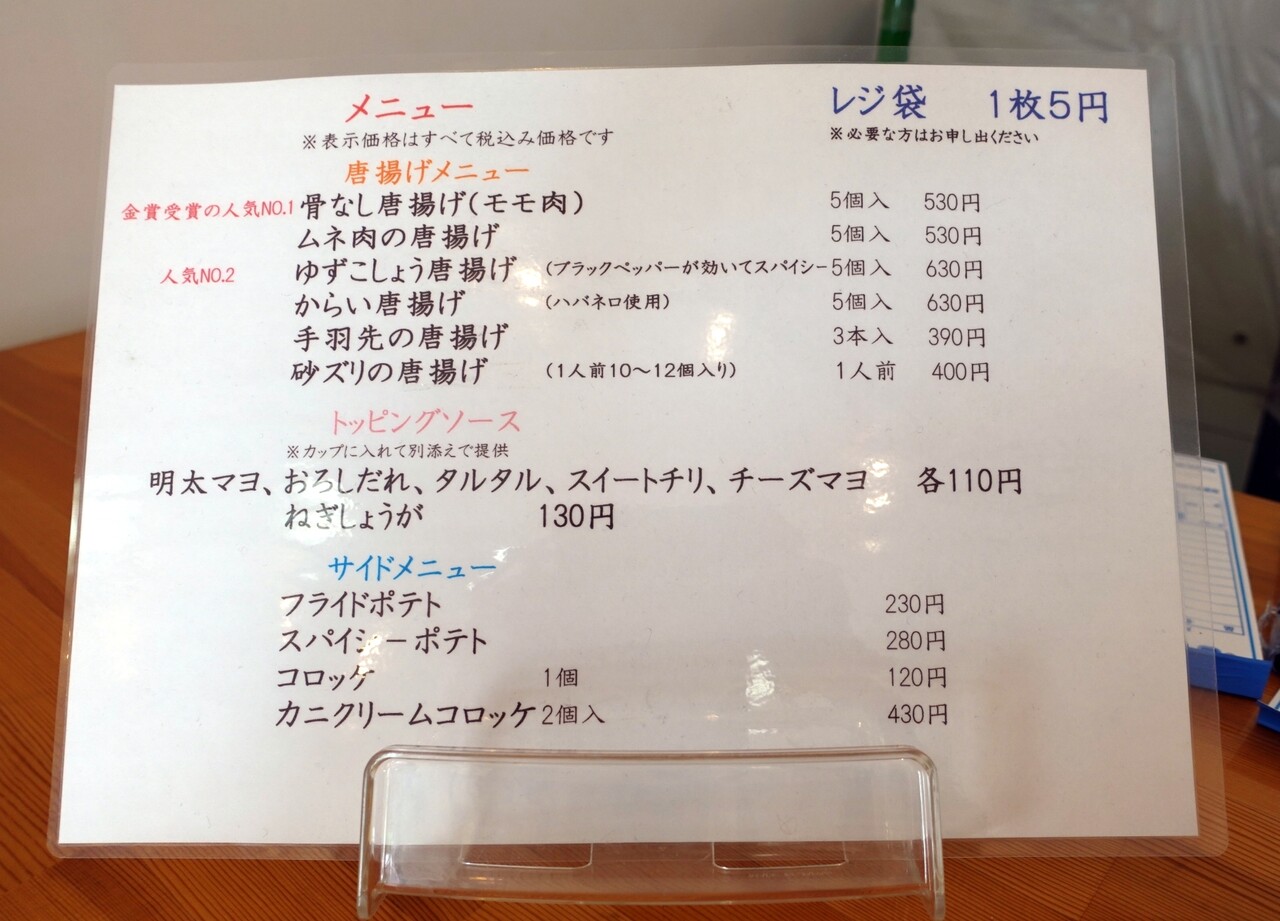 メニュー
※表示価格はすべて税込み価格です
レジ袋 1枚5円
※必要な方はお申し出ください
唐揚げメニュー
金賞受賞の人気NO.1 骨なし唐揚げ(モモ肉) 5個入 530円
ムネ肉の唐揚げ 5個入 530円
人気NO.2 ゆずこしょう唐揚げ (ブラックペッパーが効いてスパイシー 5個入 630円
からい唐揚げ (ハバネロ使用) 5個入 630円
手羽先の唐揚げ 3本入 390円
砂ズリの唐揚げ (1人前10～12個入り) 1人前 400円
トッピングソース
※カップに入れて別添えで提供
明太マヨ、おろしだれ、タルタル、スイートチリ、チーズマヨ 各110円
ねぎしょうが 130円
サイドメニュー
フライドポテト 230円
スパイシーポテト 280円
コロッケ 1個 120円
カニクリームコロッケ 2個入 430円